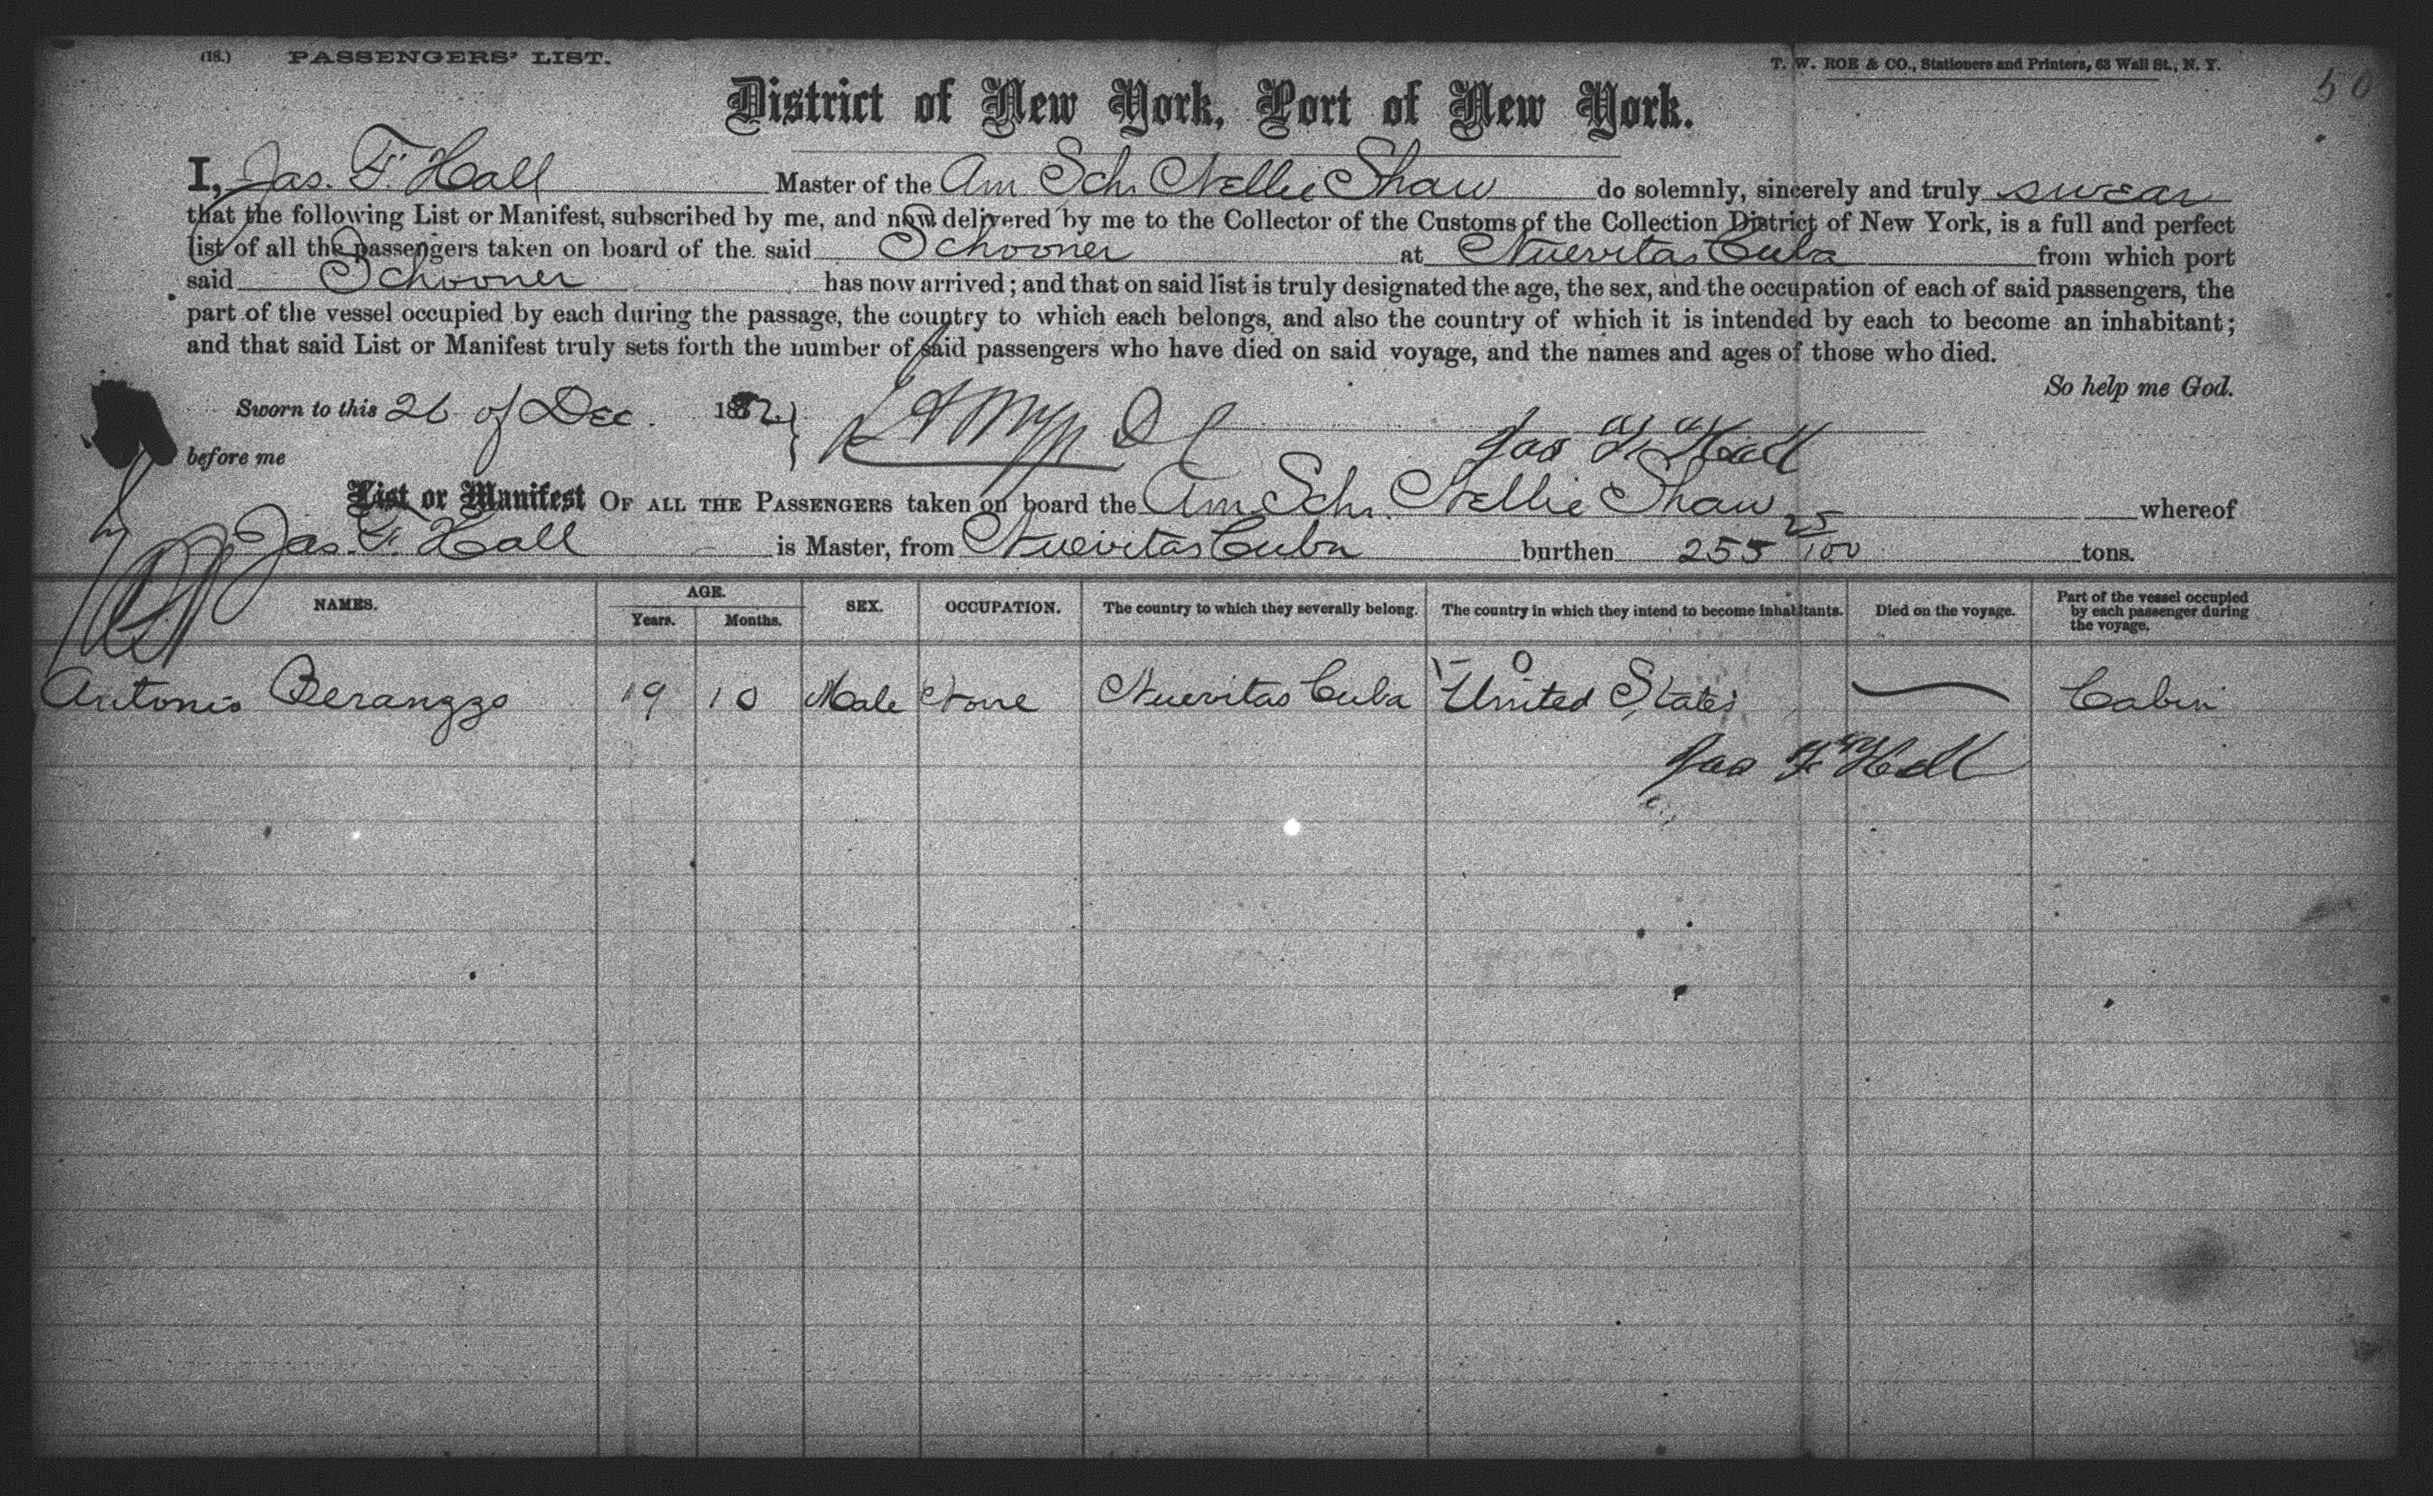 (18.) PASSENGERS' LIST.
T. W. ROE & CO., Stationers and Printers, 63 Wall St., N. Y.
50
District of New York, Port of New York.
I, Jas. F. Hall Master of the Am Schr Nellie Shaw do solemnly, sincerely and truly swear
that the following List or Manifest, subscribed by me, and now delivered by me to the Collector of the Customs of the Collection District of New York, is a full and perfect
list of all the passengers taken on board of the said Schooner at Nuevitas Cuba from which port
said Schooner has now arrived; and that on said list is truly designated the age, the sex, and the occupation of each of said passengers, the
part of the vessel occupied by each during the passage, the country to which each belongs, and also the country of which it is intended by each to become an inhabitant;
and that said List or Manifest truly sets forth the number of said passengers who have died on said voyage, and the names and ages of those who died.
So help me God.
Sworn to this 26 of Dec. 1882
Jas F Hall
before me
List or Manifest OF ALL THE PASSENGERS taken on board the Am Schr. Nellie Shaw whereof
Jas. F. Hall is Master, from Nuevitas Cuba burthen 255 25/100 tons.
NAMES. AGE. Years. Months. SEX. OCCUPATION. The country to which they severally belong. The country in which they intend to become inhabitants. Died on the voyage. Part of the vessel occupied by each passenger during the voyage.
Antonio Beranggo 19 10 Male None Nuevitas Cuba United States — Cabin
Jas F Hall